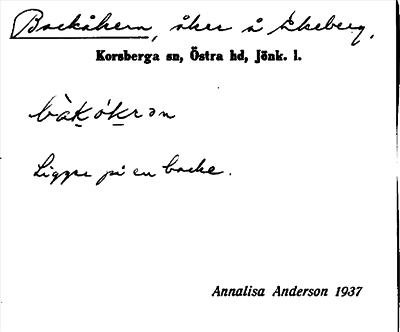 Backåkern, åker å Ekeberg,
Korsberga sn, Östra hd, Jönk. l.
bàkókrən
Ligger på en backe.
Annalisa Anderson 1937